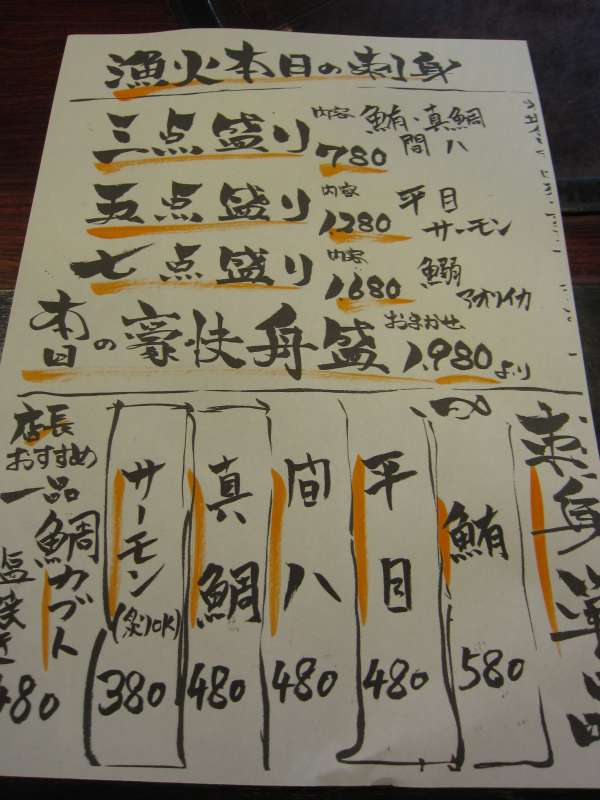 漁火本日の刺身
三点盛り 内容 780 鮪・真鯛
間八
五点盛り 内容 1,280 平目
サーモン
七点盛り 内容 1,680 鰯
アオリイカ
本日の豪快舟盛 おまかせ 1,980より
刺身単品
鮪 580
平目 480
間八 480
真鯛 480
サーモン(炙りOK) 380
店長
おすすめ
一品
鯛カブト
塩焼き
480